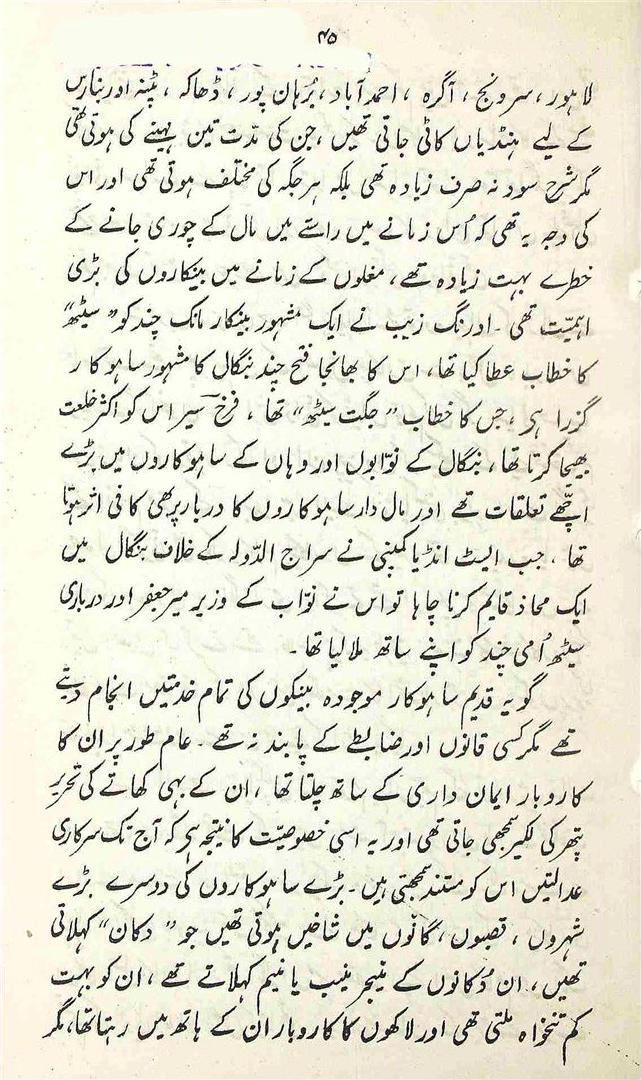 ۴۵
لاہور، سرونج، آگرہ، احمد آباد، بُرہان پور، ڈھاکہ، پٹنہ اور بنارس
کے لیے ہنڈیاں کاٹی جاتی تھیں، جن کی مدّت تین مہینے کی ہوتی تھی
مگر شرح سود نہ صرف زیادہ تھی بلکہ ہر جگہ کی مختلف ہوتی تھی اور اس
کی وجہ یہ تھی کہ اُس زمانے میں راستے میں مال کے چوری جانے کے
خطرے بہت زیادہ تھے، مغلوں کے زمانے میں بینکاروں کی بڑی
اہمیّت تھی۔ اورنگ زیب نے ایک مشہور بینکار مانک چند کو "سیٹھ"
کا خطاب عطا کیا تھا، اس کا بھانجا فتح چند بنگال کا مشہور ساہوکار
گزرا ہی، جس کا خطاب "جگت سیٹھ" تھا، فرخ سیر اس کو اکثر خلعت
بھیجا کرتا تھا، بنگال کے نوّابوں اور وہاں کے ساہوکاروں میں بڑے
اچھّے تعلقات تھے اور مال دار ساہوکاروں کا دربار پر بھی کافی اثر ہوتا
تھا، جب ایسٹ انڈیا کمپنی نے سراج الدّولہ کے خلاف بنگال میں
ایک محاذ قایم کرنا چاہا تو اس نے نوّاب کے وزیر میر جعفر اور درباری
سیٹھ اُمی چند کو اپنے ساتھ ملا لیا تھا۔
گو یہ قدیم ساہوکار موجودہ بینکوں کی تمام خدمتیں انجام دیتے
تھے مگر کسی قانون اور ضابطے کے پابند نہ تھے۔ عام طور پر ان کا
کاروبار ایمان داری کے ساتھ چلتا تھا، ان کے بہی کھاتے کی تحریر
پتھر کی لکیر سمجھی جاتی تھی اور یہ اسی خصوصیّت کا نتیجہ ہی کہ آج تک سرکاری
عدالتیں اس کو مستند سمجھتی ہیں۔ بڑے ساہوکاروں کی دوسرے بڑے
شہروں، قصبوں، گانوں میں شاخیں ہوتی تھیں جو "دکان" کہلاتی
تھیں، ان دُکانوں کے منیجر منیب یا منیم کہلاتے تھے، ان کو بہت
کم تنخواہ ملتی تھی اور لاکھوں کا کاروبار ان کے ہاتھ میں رہتا تھا، مگر